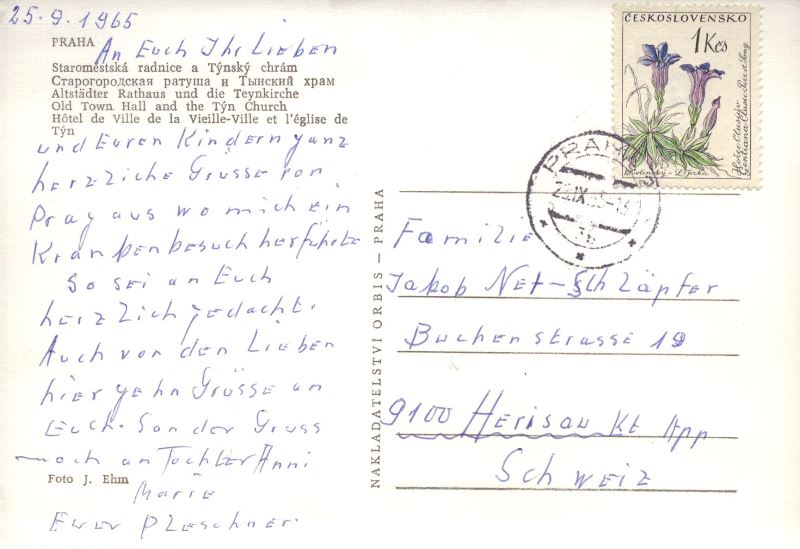 25.9.1965
PRAHA
An Euch Ihr Lieben
Staroměstská radnice a Týnský chrám
Старогородская ратуша и Тынский храм
Altstädter Rathaus und die Teynkirche
Old Town Hall and the Týn Church
Hôtel de Ville de la Vieille-Ville et l'église de
Týn
und Euren Kindern ganz
herzliche Grüsse von
Prag aus wo mich ein
Krankenbesuch herführte
So sei an Euch
herzlich gedacht.
Auch von den Lieben
hier gehn Grüsse an
Euch. Sonder Gruss
noch an Tochter Anni
Foto J. Ehm
Marie
Euer Pleschner
NAKLADATELSTVÍ ORBIS – PRAHA
ČESKOSLOVENSKO
1 Kčs
Gentiana Clusii Perr. et Song.
PRAHA
Familie
Jakob Nef-Schläpfer
Buchenstrasse 19
9100 Herisau Kt App
Schweiz